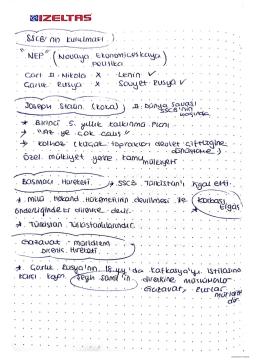 İZELTAŞ
SSCB'nin kurulması
"NEP" (Novaya Ekonomiçeskaya) politika
Çar II. Nikola X Lenin ✓
Çarlık Rusya X Sovyet Rusya ✓
Joseph Stalin (Koba) II. Dünya Savaşı SSCB'nin başında
* Birinci 5. yıllık kalkınma planı
→ "Az ye çok çalış"
→ kolhoz (küçük toprakları devlet çiftliğine dönüştürme)
Özel mülkiyet yerine kamu mülkiyeti
Basmacı Hareketi → SSCB Türkistan'ı işgal etti.
* Milli Hokand Hükümetinin devrilmesi ile Korbaşı Ergaş
önderliğinde direnişe devam
* Türkistan Türkistanlılarındır.
Gazavat - müridizm direniş hareketi
* Çarlık Rusya'nın 18.yy'da Kafkasya'yı istilasına
karşı Şeyh Şamil'in direnişine müslümanlar
Gazavat, Ruslar müridizm dir.